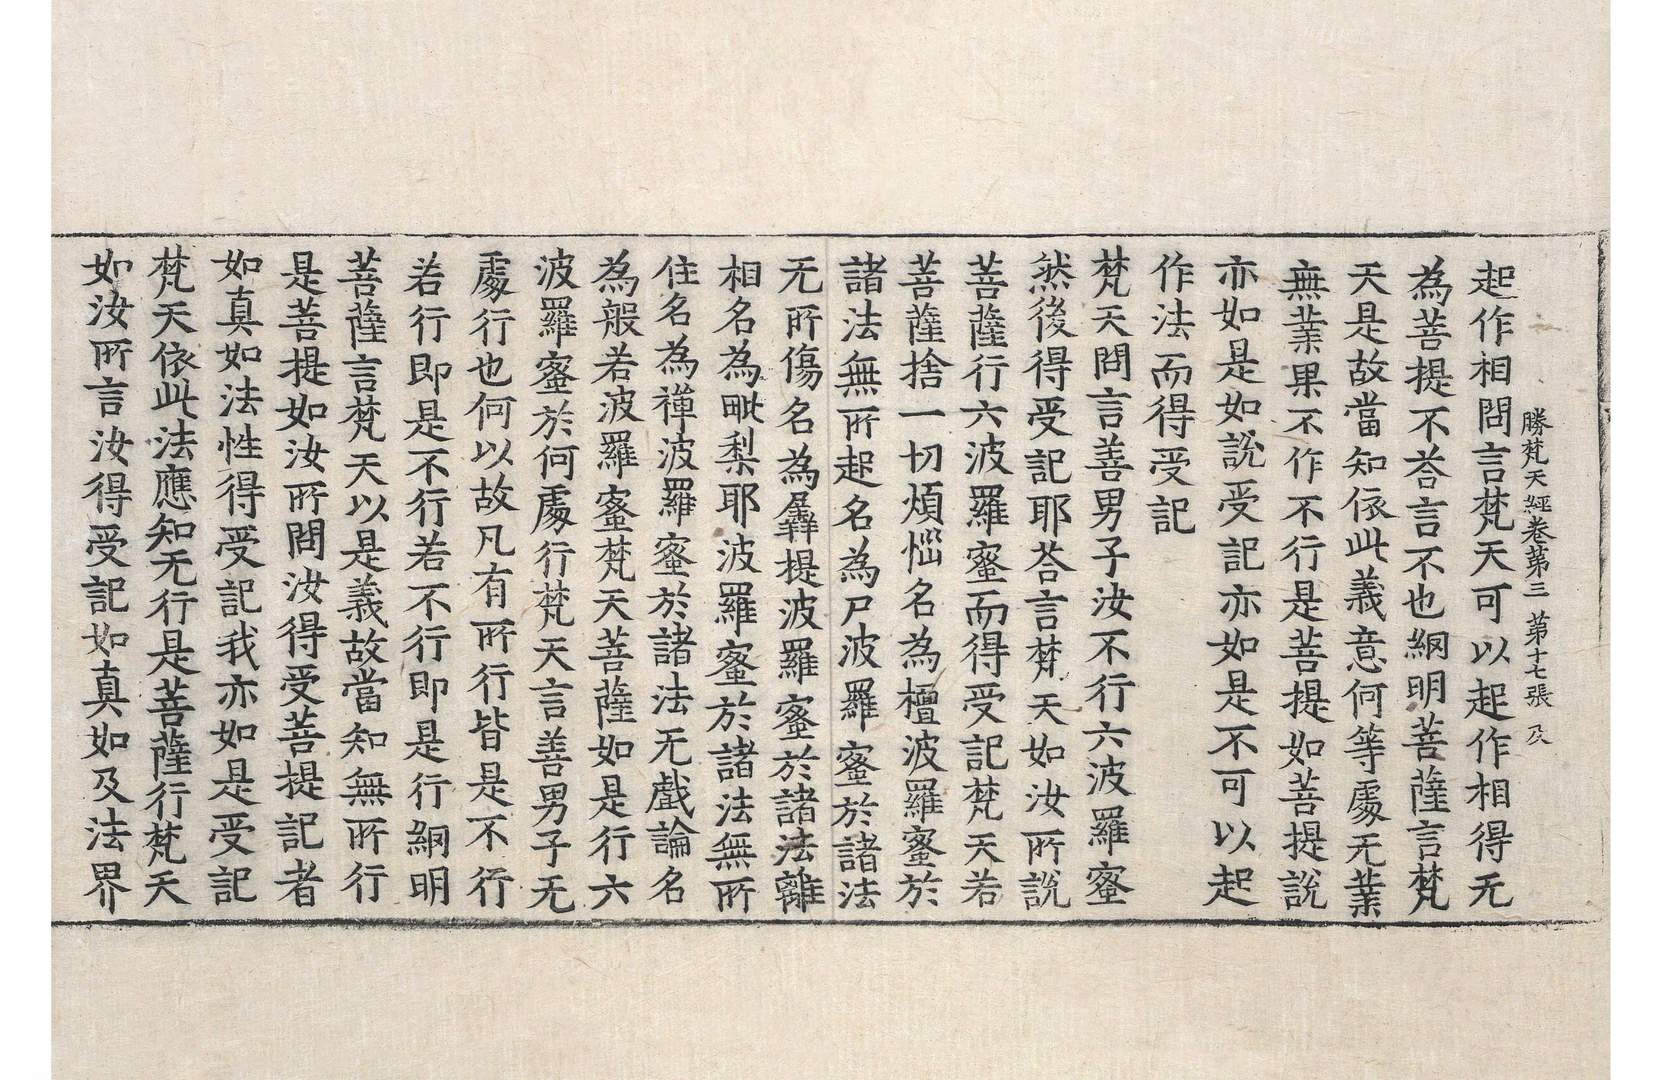 勝梵天經卷第三 第十七張 及
起作相問言梵天可以起作相得无
為菩提不荅言不也網明菩薩言梵
天是故當知依此義意何等處无業
無業果不作不行是菩提如菩提說
亦如是如說受記亦如是不可以起
作法而得受記
梵天問言善男子汝不行六波羅蜜
然後得受記耶荅言梵天如汝所說
菩薩行六波羅蜜而得受記梵天若
菩薩捨一切煩惱名為檀波羅蜜於
諸法無所起名為尸波羅蜜於諸法
无所傷名為羼提波羅蜜於諸法離
相名為毗梨耶波羅蜜於諸法無所
住名為禪波羅蜜於諸法无戲論名
為般若波羅蜜梵天菩薩如是行六
波羅蜜於何處行梵天言善男子无
處行也何以故凡有所行皆是不行
若行即是不行若不行即是行網明
菩薩言梵天以是義故當知無所行
是菩提如汝所問汝得受菩提記者
如真如法性得受記我亦如是受記
梵天依此法應知无行是菩薩行梵天
如汝所言汝得受記如真如及法界